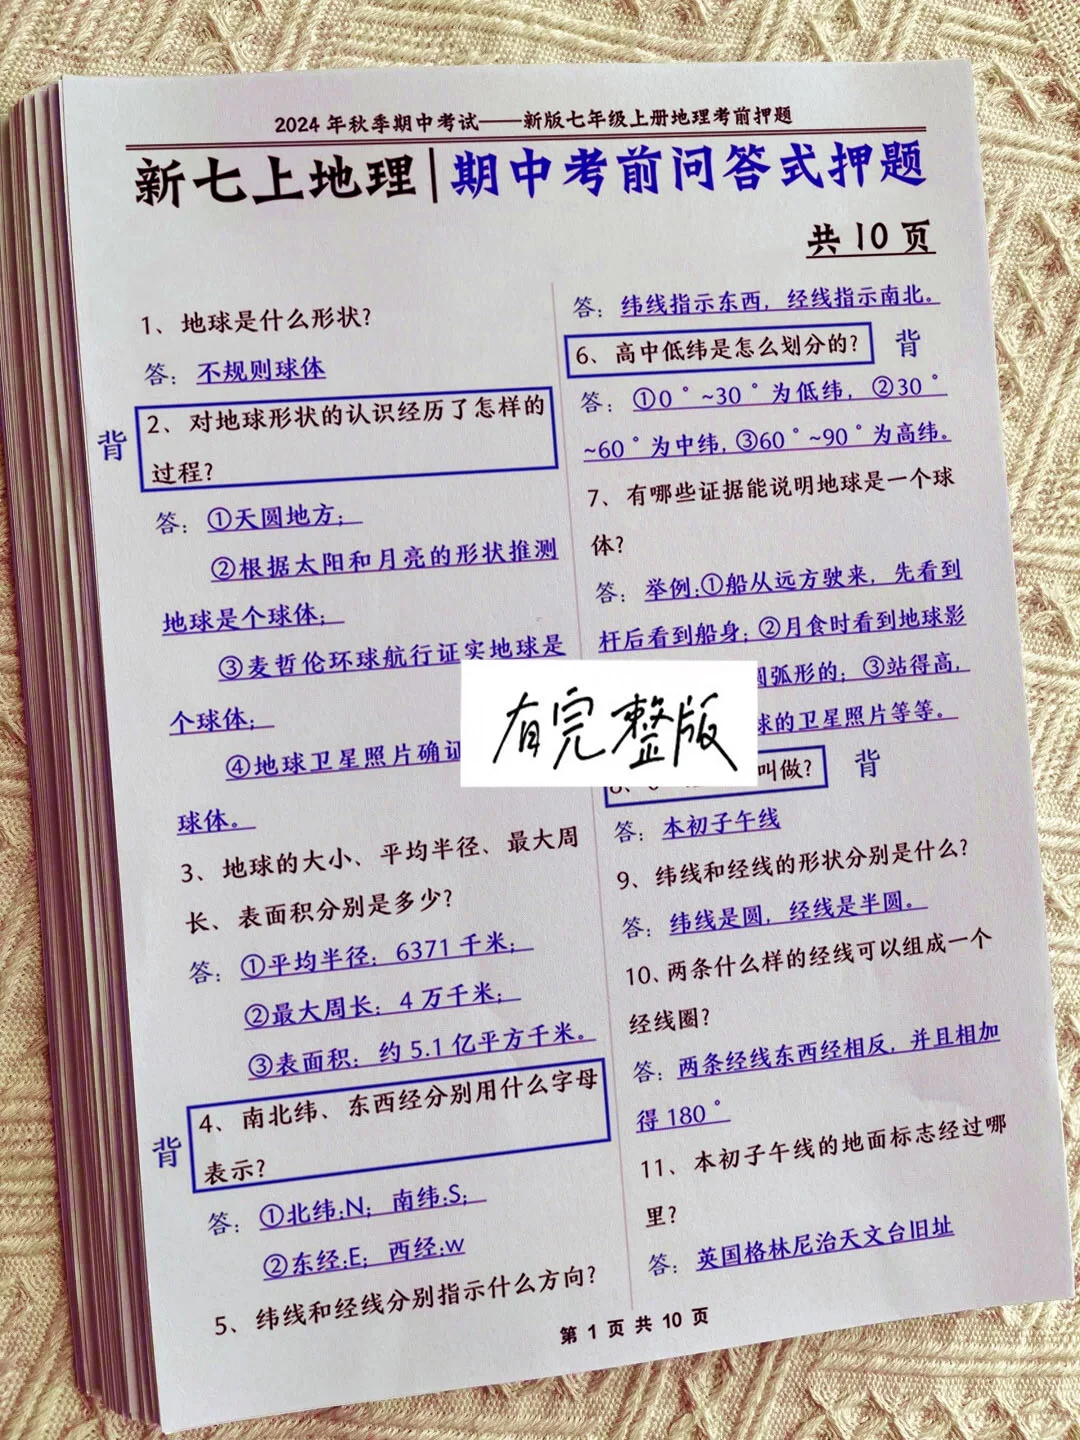 2024年秋季期中考试——新版七年级上册地理考前押题
新七上地理|期中考前问答式押题
共10页
1、地球是什么形状?
答：不规则球体
背
2、对地球形状的认识经历了怎样的
过程?
答：①天圆地方；
②根据太阳和月亮的形状推测
地球是个球体；
③麦哲伦环球航行证实地球是
个球体；
④地球卫星照片确证
球体。
3、地球的大小、平均半径、最大周
长、表面积分别是多少?
答：①平均半径：6371千米；
②最大周长：4万千米；
③表面积：约5.1亿平方千米。
背
4、南北纬、东西经分别用什么字母
表示?
答：①北纬:N；南纬:S；
②东经:E；西经:w
5、纬线和经线分别指示什么方向?
答：纬线指示东西，经线指示南北。
6、高中低纬是怎么划分的?
背
答：①0°~30°为低纬，②30°
~60°为中纬,③60°~90°为高纬。
7、有哪些证据能说明地球是一个球
体?
答：举例:①船从远方驶来，先看到
杆后看到船身；②月食时看到地球影
圆弧形的；③站得高，
球的卫星照片等等。
有完整版
叫做?
背
答：本初子午线
9、纬线和经线的形状分别是什么?
答：纬线是圆，经线是半圆。
10、两条什么样的经线可以组成一个
经线圈?
答：两条经线东西经相反，并且相加
得180°
11、本初子午线的地面标志经过哪
里?
答：英国格林尼治天文台旧址
第1页共10页